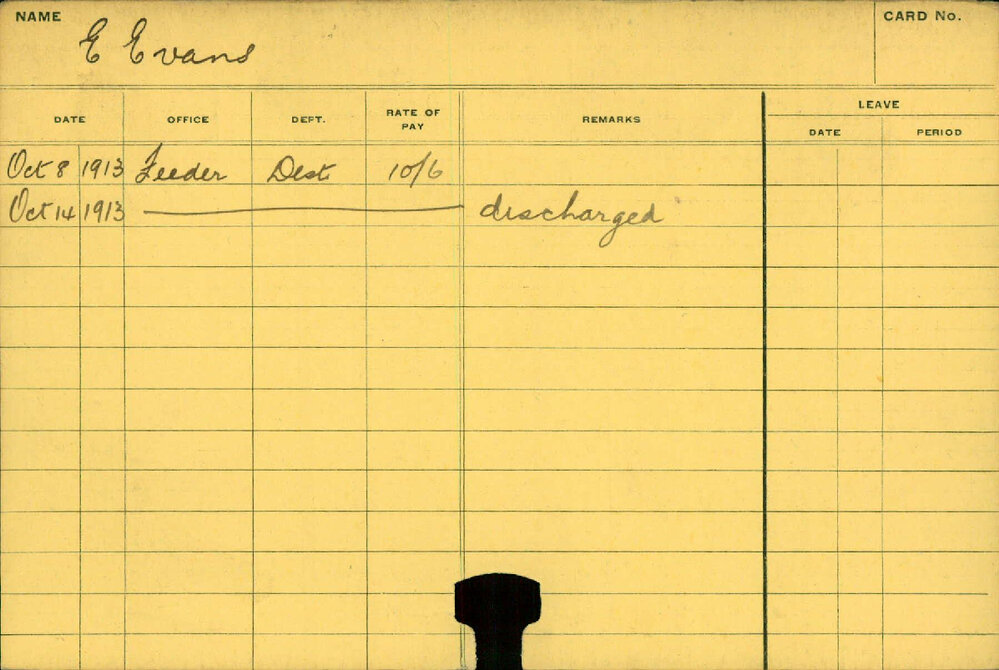 NAME E Evans CARD No.
DATE OFFICE DEPT. RATE OF PAY REMARKS LEAVE
DATE PERIOD
Oct 8 1913 Feeder Dest 10/6
Oct 14 1913 discharged